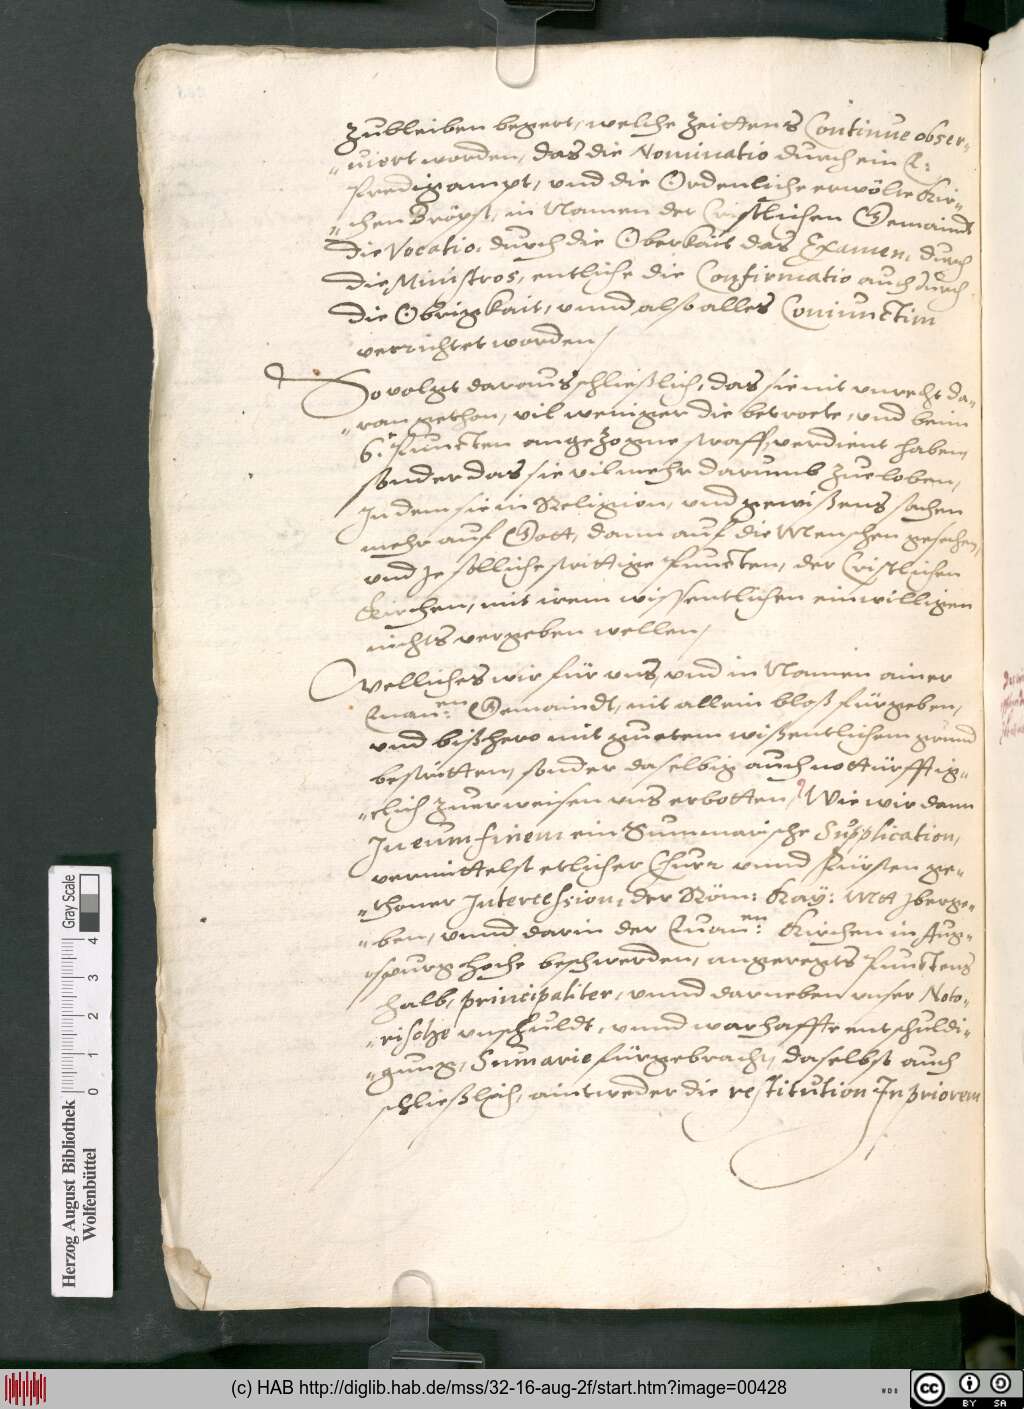 Zubleiben begert, welche Zeittens Continue obser„
„uiert worden, das die Nominatio durch ein E:
Predigampt, und die Ordenliche erwölte Kir„
„chen Bröpst, in Namen der Cristlichen Gemaindt
die Vocatio, durch die Oberkait das Examen, durch
die Ministros, entliche die Confirmatio auch durch
die Obrigkait, vnnd also alles Coniunctim
verrichtet worden,
So volgt daraus schließlich, das sie nit vnrecht da„
„ran gethon, vil weniger die betroete, vnd beim
6.n Puncten angezogne straff, verdient haben,
sonder das sie vilmehr darumb zueloben,
Jn dem sie in Religion, vnd gewißens sachen
mehr auf Gott, dann auf die Menschen gesehen,
vnd Je solliche strittige Puncten, der Cristlichen
Kirchen, mit irem wissentlichen einwilligen
nichts vergeben wellen,
Welliches wir für vns, vnd in Namen ainer
Euan:en Gemaindt, nit allein bloß fürgeben,
vnd bißhero mit guetem wißentlichem grund
bestritten, sonder daselbig auch notturfftig„
„clich zuerweisen vns erbotten, Wie wir dann
Jn eum finem ein Summarische Supplication,
vermittelst etlicher Chur vnnd Fürsten ge„
„thoner Intercession, der Röm: Kay: Mtt yberge„
„ben, vnnd darin der Euan:en Kirchen in Aug„
„spurg hoche beschwerden, angeregts Punctens
halb, principaliter, vnnd darneben vnser Noto„
„rische vnschuldt, vnnd warhaffte entschuldi„
„gung, Sumarie fürgebracht, daselbst auch
schließlich, aintweder die restitution Jn priorem
Herzog August Bibliothek
Wolfenbüttel
0 1 2 3 4
Gray Scale
(c) HAB http://diglib.hab.de/mss/32-16-aug-2f/start.htm?image=00428
WDB
cc BY SA